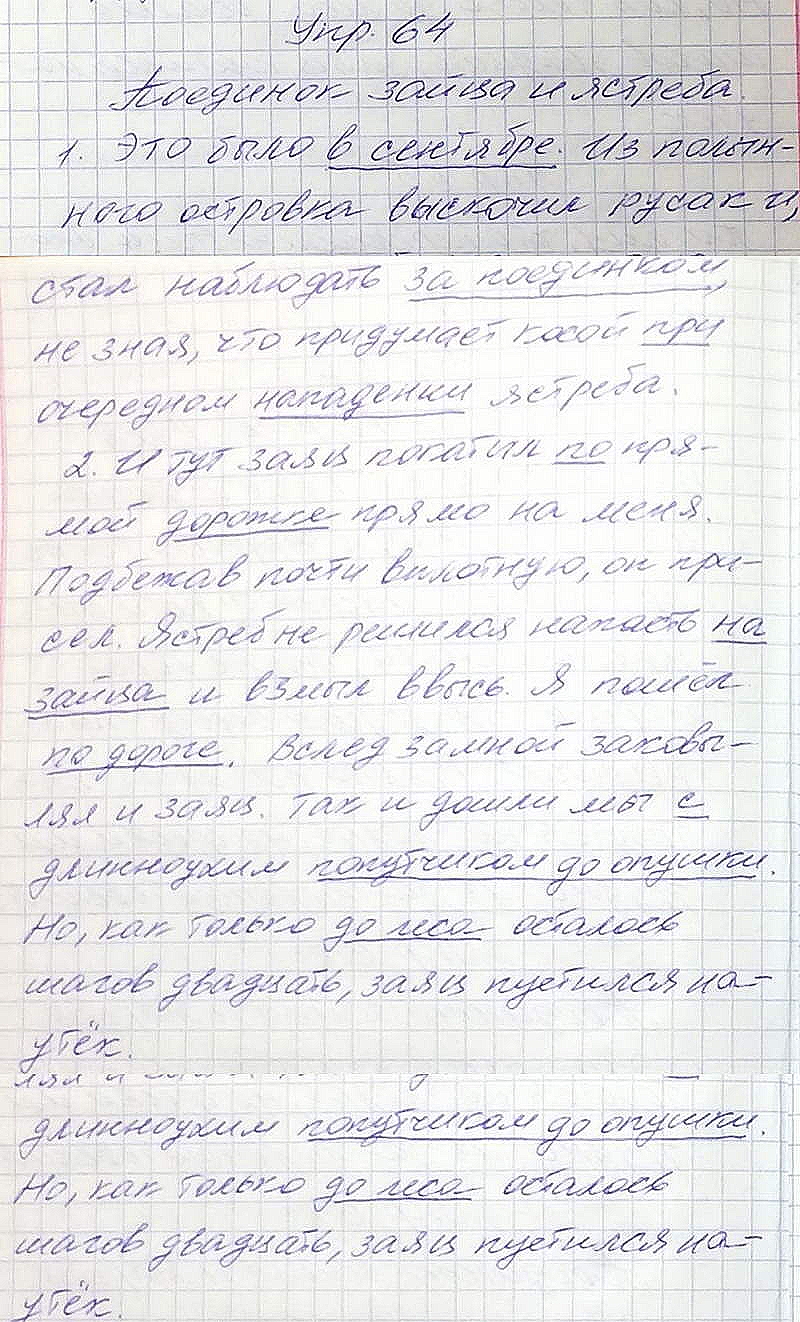 Упр. 64
Поединок зайца и ястреба.
1. Это было в сентябре. Из полын-
ного островка выскочил русак и,
стал наблюдать за поединком,
не зная, что придумает косой при
очередном нападении ястреба.
2. И тут заяц покатил по пря-
мой дорожке прямо на меня.
Подбежав почти вплотную, он при-
сел. Ястреб не решился напасть на
зайца и взмыл ввысь. Я пошёл
по дороге. Вслед за мной заковы-
лял и заяц. Так и дошли мы с
длинноухим попутчиком до опушки.
Но, как только до леса осталось
шагов двадцать, заяц пустился на-
утёк.
длинноухим попутчиком до опушки.
Но, как только до леса осталось
шагов двадцать, заяц пустился на-
утёк.